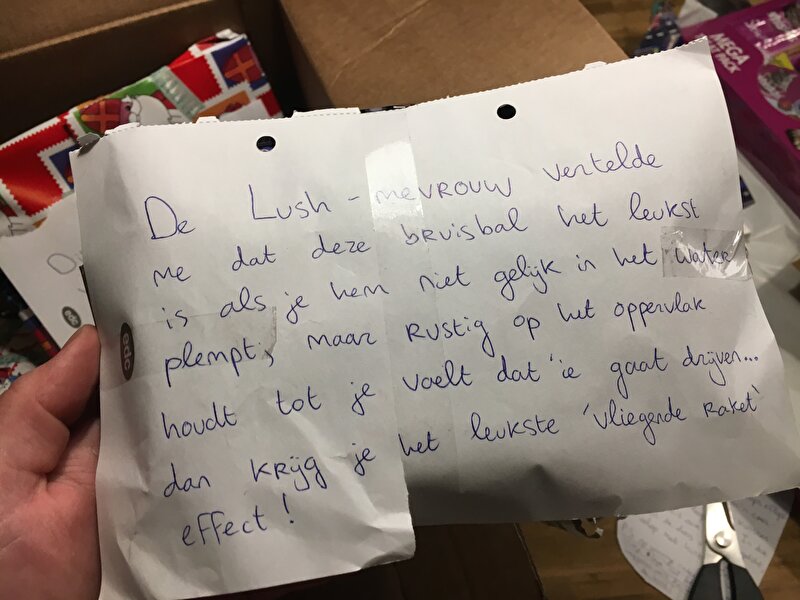 De Lush - mevrouw vertelde
me dat deze bruisbal het leukst
is als je hem niet gelijk in het water
plempt, maar rustig op het oppervlak
houdt tot je voelt dat 'ie gaat drijven...
dan krijg je het leukste 'vliegende raket'
effect!
edc
edc
MEGA
PACK